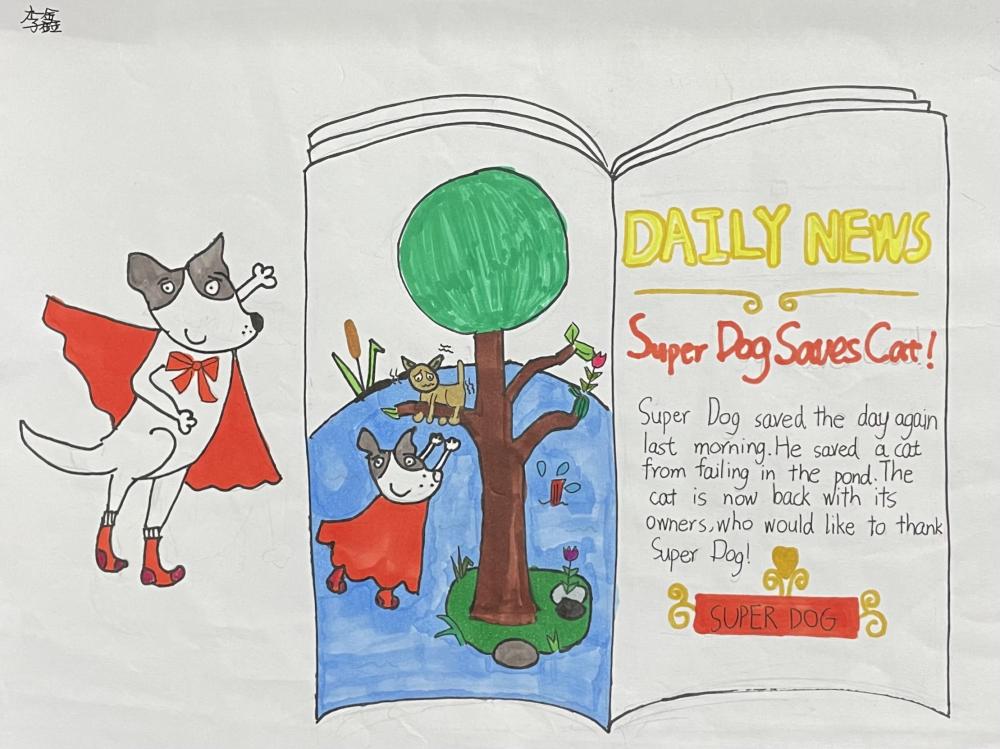 李鑫
DAILY NEWS
Super Dog Saves Cat!
Super Dog saved the day again
last morning. He saved a cat
from failing in the pond. The
cat is now back with its
owners, who would like to thank
Super Dog!
SUPER DOG